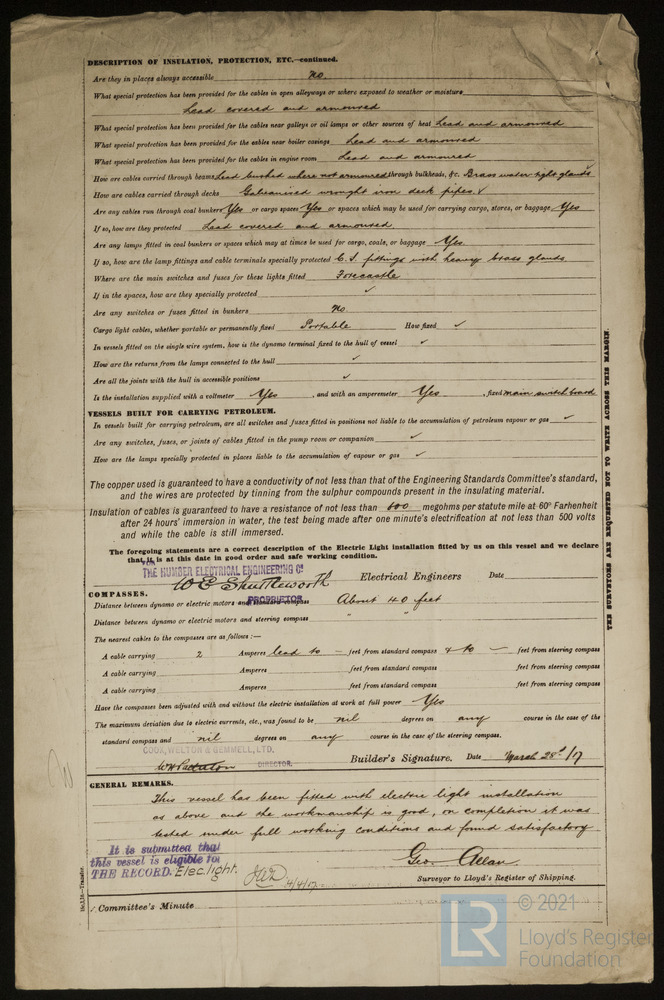 DESCRIPTION OF INSULATION, PROTECTION, ETC.—continued.
Are they in places always accessible No.
What special protection has been provided for the cables in open alleyways or where exposed to weather or moisture
Lead covered and armoured
What special protection has been provided for the cables near galleys or oil lamps or other sources of heat Lead and armoured
What special protection has been provided for the cables near boiler casings Lead and armoured
What special protection has been provided for the cables in engine room Lead and armoured
How are cables carried through beams Lead bushed where not armoured through bulkheads, &c. Brass water-tight glands ✓
How are cables carried through decks Galvanised wrought iron deck pipes ✓
Are any cables run through coal bunkers Yes or cargo spaces Yes or spaces which may be used for carrying cargo, stores, or baggage Yes
If so, how are they protected Lead covered and armoured
Are any lamps fitted in coal bunkers or spaces which may at times be used for cargo, coals, or baggage Yes
If so, how are the lamp fittings and cable terminals specially protected C.I. fittings with heavy brass glands
Where are the main switches and fuses for these lights fitted Forecastle
If in the spaces, how are they specially protected ✓
Are any switches or fuses fitted in bunkers No
Cargo light cables, whether portable or permanently fixed Portable How fixed ✓
In vessels fitted on the single wire system, how is the dynamo terminal fixed to the hull of vessel ✓
How are the returns from the lamps connected to the hull ✓
Are all the joints with the hull in accessible positions ✓
Is the installation supplied with a voltmeter Yes, and with an amperemeter Yes, fixed main switch board
VESSELS BUILT FOR CARRYING PETROLEUM.
In vessels built for carrying petroleum, are all switches and fuses fitted in positions not liable to the accumulation of petroleum vapour or gas ✓
Are any switches, fuses, or joints of cables fitted in the pump room or companion ✓
How are the lamps specially protected in places liable to the accumulation of vapour or gas ✓
The copper used is guaranteed to have a conductivity of not less than that of the Engineering Standards Committee's standard,
and the wires are protected by tinning from the sulphur compounds present in the insulating material.
Insulation of cables is guaranteed to have a resistance of not less than 600 megohms per statute mile at 60° Farhenheit
after 24 hours' immersion in water, the test being made after one minute's electrification at not less than 500 volts
and while the cable is still immersed.
The foregoing statements are a correct description of the Electric Light installation fitted by us on this vessel and we declare
that it is at this date in good order and safe working condition.
FOR THE HUMBER ELECTRICAL ENGINEERING Co
W E Shuttleworth Electrical Engineers Date
PROPRIETOR
COMPASSES.
Distance between dynamo or electric motors and standard compass About 40 feet
Distance between dynamo or electric motors and steering compass " "
The nearest cables to the compasses are as follows:—
A cable carrying 2 Amperes lead to — feet from standard compass & to — feet from steering compass
A cable carrying Amperes feet from standard compass feet from steering compass
A cable carrying Amperes feet from standard compass feet from steering compass
Have the compasses been adjusted with and without the electric installation at work at full power Yes
The maximum deviation due to electric currents, etc., was found to be nil degrees on any course in the case of the
standard compass and nil degrees on any course in the case of the steering compass.
COOK, WELTON & GEMMELL, LTD.
DIRECTOR. Builder's Signature. Date March 28th/17
GENERAL REMARKS.
This vessel has been fitted with electric light installation
as above and the workmanship is good, on completion it was
tested under full working conditions and found satisfactory
It is submitted that
this vessel is eligible for
THE RECORD. Elec. light. 14/4/17
Geo. Allan
Surveyor to Lloyd's Register of Shipping.
Committee's Minute
THE SURVEYORS ARE REQUESTED NOT TO WRITE ACROSS THIS MARGIN
LR © 2021
Lloyd's Register
Foundation